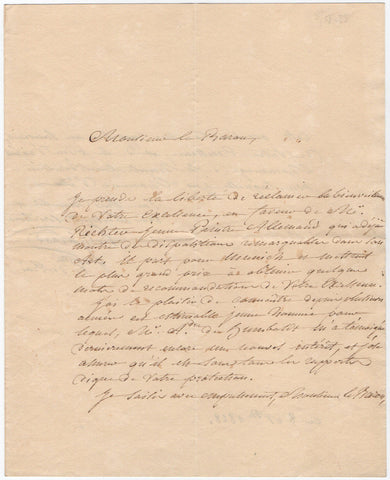 Monsieur le Baron,
Je prends la liberté de réclamer la bienveillance
de Votre Excellence, en faveur de Mr.
Richter jeune Peintre Allemand qui a déjà
montré des dispositions remarquables dans son
Art. Il part pour Munich et mettroit
le plus grand prix à obtenir quelques
mots de recommandation de Votre Excellence.
J'ai le plaisir de connoitre depuis plusieurs
années cet estimable jeune homme pour
lequel, Mr. Adre de Humboldt m'a témoigné
dernièrement encore un nouvel intérêt, et j'ose
assurer qu'il est sous tous les rapports
digne de Votre protection.
Je saisis avec empressement, Monsieur le Baron,